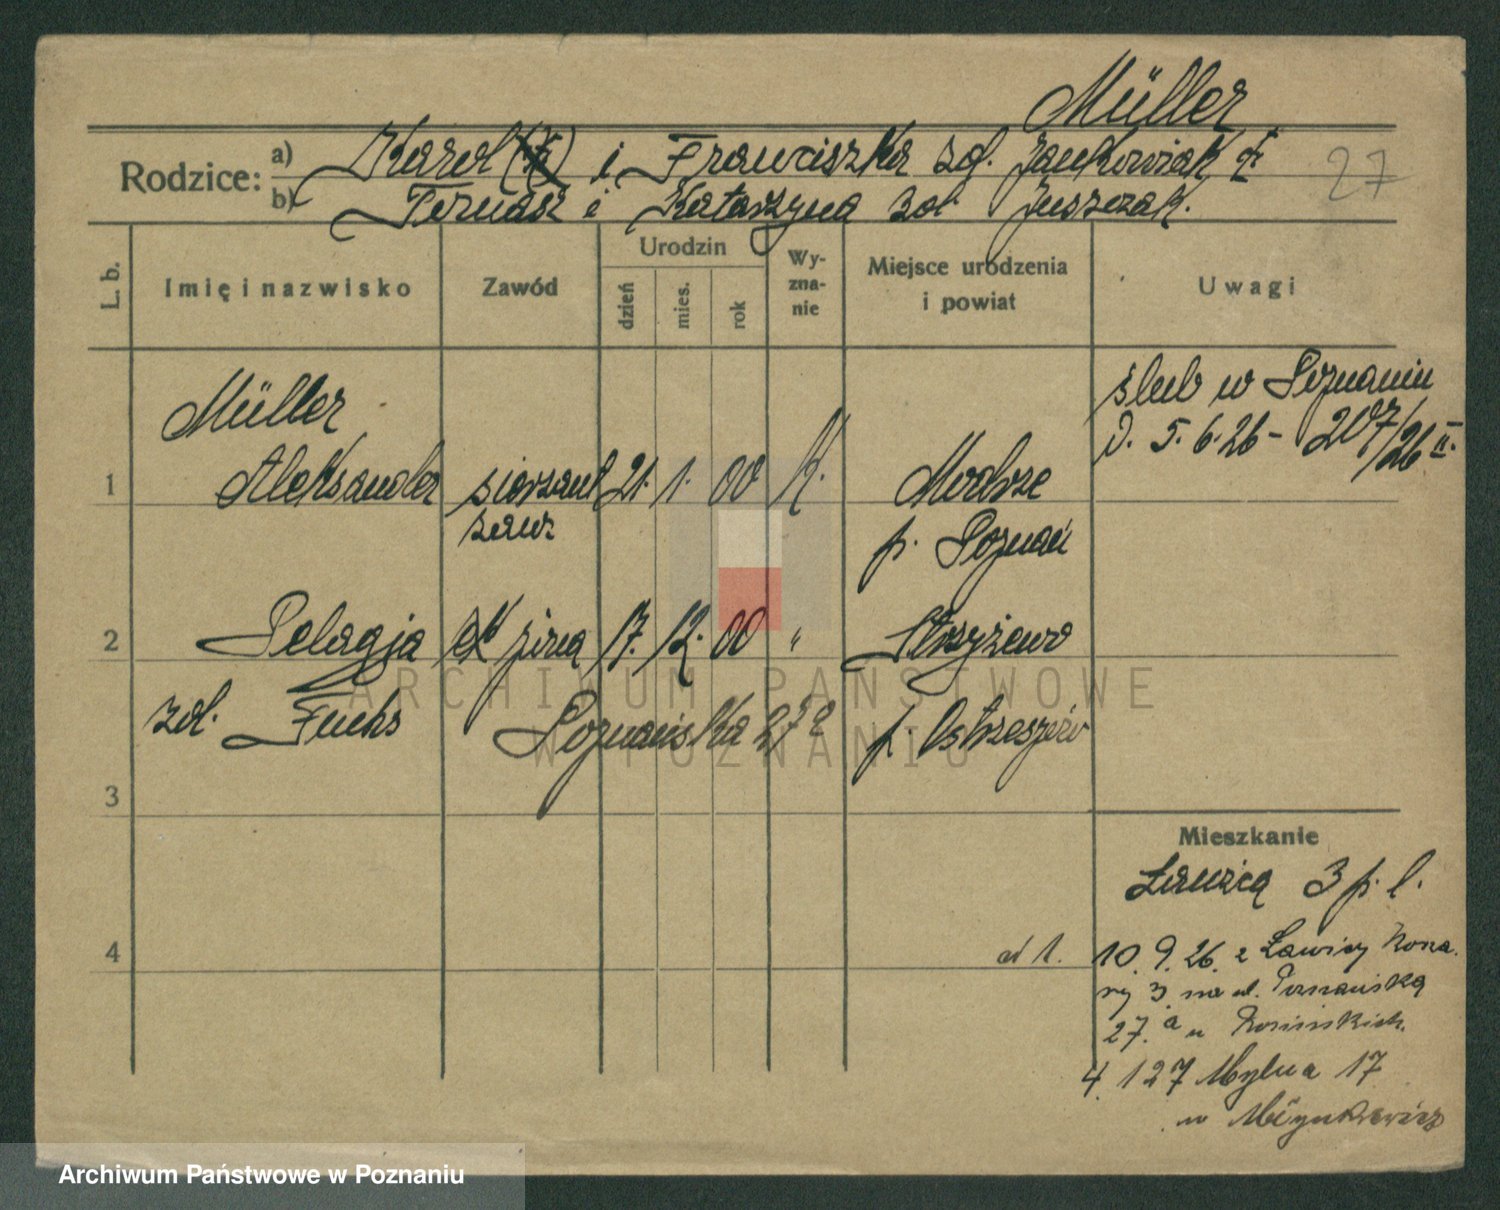 Müller
Rodzice: a) Karol i Franciszka zd. Jankowiak
b) Tomasz i Katarzyna zd. Juszczak.
27
L. b.
Imię i nazwisko
Zawód
Urodzin
dzień
mies.
rok
Wy-
zna-
nie
Miejsce urodzenia
i powiat
Uwagi
Müller
ślub w Poznaniu
d. 5. 6. 26 - 207/26 II.
1 Aleksander sierżant 21. 1. 00 K. Modrze
zaw. p. Poznań
2 Pelagja 17. 12. 00 " Strzyżewo
zd. Fuchs Poznańska 27a p. Ostrzeszów
3
Mieszkanie
Ławica 3 p. l.
4 od 1. 10. 9. 26. z Ławicy Kona
ry 3 na ul. Poznańską
27.a u
4 1 27 Mylna 17
ARCHIWUM PAŃSTWOWE
W POZNANIU
Archiwum Państwowe w Poznaniu